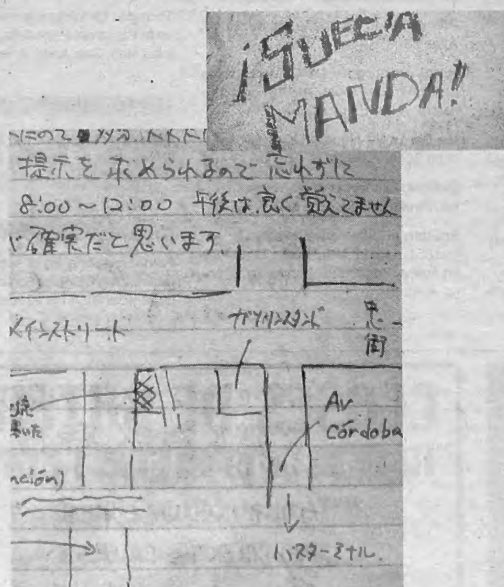 ¡SUECIA
MANDA!
提示を求められるので忘れずに
8:00~12:00 午後は良く覚えてません
確実だと思います.
メインストリート
ガソリンスタンド
街
Av
córdoba
nción)
バスターミナル.